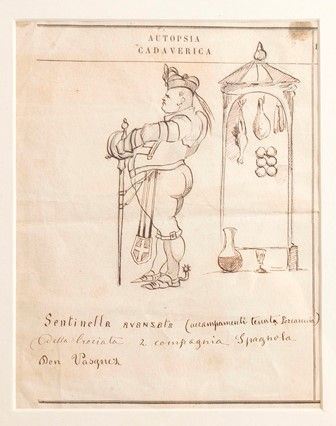 AUTOPSIA
CADAVERICA
Sentinella avanzata (accampamenti tenuta
(della Crociata 2 compagnia Spagnola
Don Vasquez